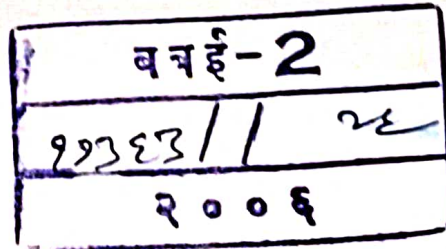 बबई-2
११३६३// २६
२००६